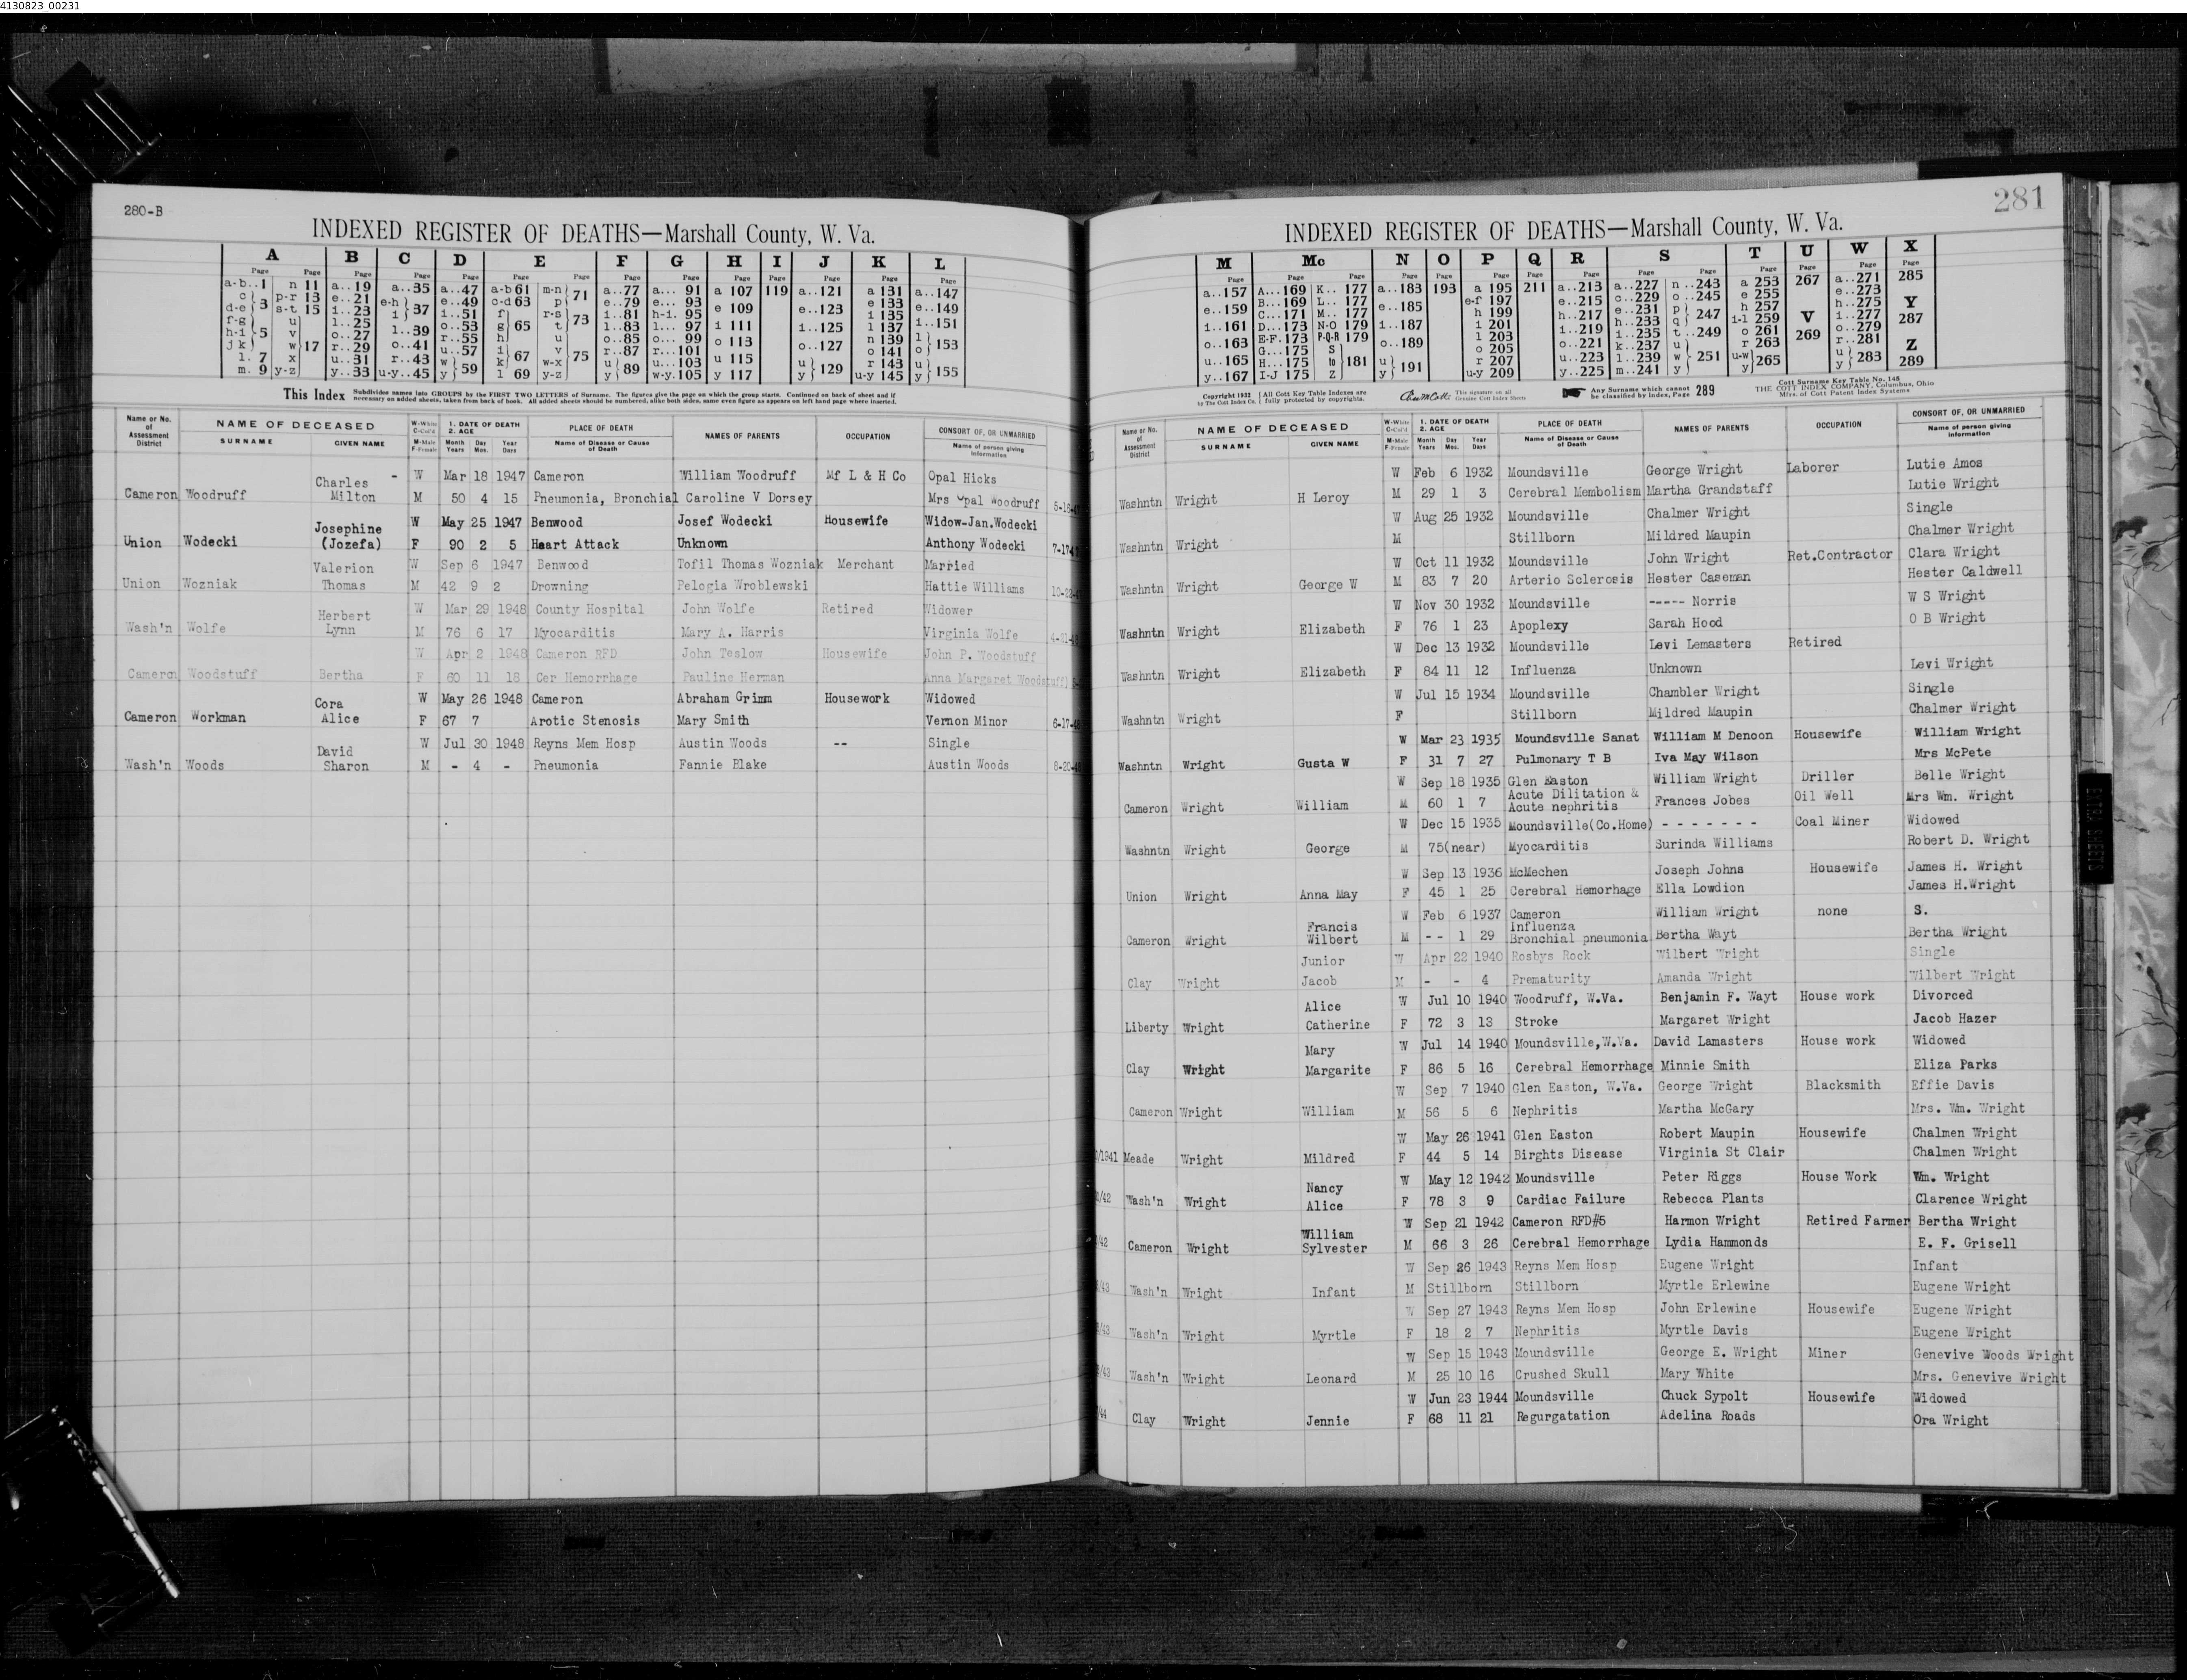 4130823_00231
280-B
INDEXED REGISTER OF DEATHS—Marshall County, W. Va.
A B C D E F G H I J K L
This Index Subdivides names into GROUPS by the FIRST TWO LETTERS of Surname. The figures give the page on which the group starts. Continued on back of sheet and if
necessary on added sheets, taken from back of book. All added sheets should be numbered, alike both sides, same even figure as appears on left hand page where inserted.
Name or No. of Assessment District NAME OF DECEASED SURNAME GIVEN NAME W-White C-Col'd M-Male F-Female 1. DATE OF DEATH 2. AGE Month Years Day Mos. Year Days PLACE OF DEATH Name of Disease or Cause of Death NAMES OF PARENTS OCCUPATION CONSORT OF, OR UNMARRIED Name of person giving information
Charles - W Mar 18 1947 Cameron William Woodruff Mf L & H Co Opal Hicks
Cameron Woodruff Milton M 50 4 15 Pneumonia, Bronchial Caroline V Dorsey Mrs Opal Woodruff
Josephine W May 25 1947 Benwood Josef Wodecki Housewife Widow-Jan.Wodecki
Union Wodecki (Jozefa) F 90 2 5 Heart Attack Unknown Anthony Wodecki
Valerion W Sep 6 1947 Benwood Tofil Thomas Wozniak Merchant Married
Union Wozniak Thomas M 42 9 2 Drowning Pelogia Wroblewski Hattie Williams
Herbert W Mar 29 1948 County Hospital John Wolfe Retired Widower
Wash'n Wolfe Lynn M 76 6 17 Myocarditis Mary A. Harris Virginia Wolfe
W Apr 2 1948 Cameron RFD John Teslow Housewife John P. Woodstuff
Cameron Woodstuff Bertha F 60 11 18 Cer Hemorrhage Pauline Herman Anna Margaret Woodstuff
Cora W May 26 1948 Cameron Abraham Grimm Housework Widowed
Cameron Workman Alice F 67 7 Arotic Stenosis Mary Smith Vernon Minor
David W Jul 30 1948 Reyns Mem Hosp Austin Woods -- Single
Wash'n Woods Sharon M - 4 - Pneumonia Fannie Blake Austin Woods
281
INDEXED REGISTER OF DEATHS—Marshall County, W. Va.
M Mc N O P Q R S T U W X
Y
V
Z
Copyright 1932 by The Cott Index Co. All Cott Key Table Indexes are fully protected by copyrights. This signature on all Genuine Cott Index Sheets Any Surname which cannot be classified by Index, Page 289 Cott Surname Key Table No. 148
THE COTT INDEX COMPANY, Columbus, Ohio
Mfrs. of Cott Patent Index Systems
Name or No. of Assessment District NAME OF DECEASED SURNAME GIVEN NAME W-White C-Col'd M-Male F-Female 1. DATE OF DEATH 2. AGE Month Years Day Mos. Year Days PLACE OF DEATH Name of Disease or Cause of Death NAMES OF PARENTS OCCUPATION CONSORT OF, OR UNMARRIED Name of person giving information
W Feb 6 1932 Moundsville George Wright Laborer Lutie Amos
Washntn Wright H Leroy M 29 1 3 Cerebral Membolism Martha Grandstaff Lutie Wright
W Aug 25 1932 Moundsville Chalmer Wright Single
Washntn Wright M Stillborn Mildred Maupin Chalmer Wright
W Oct 11 1932 Moundsville John Wright Ret.Contractor Clara Wright
Washntn Wright George W M 83 7 20 Arterio Sclerosis Hester Caseman Hester Caldwell
W Nov 30 1932 Moundsville ----- Norris W S Wright
Washntn Wright Elizabeth F 76 1 23 Apoplexy Sarah Hood O B Wright
W Dec 13 1932 Moundsville Levi Lemasters Retired
Washntn Wright Elizabeth F 84 11 12 Influenza Unknown Levi Wright
W Jul 15 1934 Moundsville Chambler Wright Single
Washntn Wright F Stillborn Mildred Maupin Chalmer Wright
W Mar 23 1935 Moundsville Sanat William M Denoon Housewife William Wright
Washntn Wright Gusta W F 31 7 27 Pulmonary T B Iva May Wilson Mrs McPete
W Sep 18 1935 Glen Easton William Wright Driller Belle Wright
Cameron Wright William M 60 1 7 Acute Dilitation & Acute nephritis Frances Jobes Oil Well Mrs Wm. Wright
W Dec 15 1935 Moundsville(Co.Home) - - - - - - - Coal Miner Widowed
Washntn Wright George M 75(near) Myocarditis Surinda Williams Robert D. Wright
W Sep 13 1936 McMechen Joseph Johns Housewife James H. Wright
Union Wright Anna May F 45 1 25 Cerebral Hemorhage Ella Lowdion James H.Wright
W Feb 6 1937 Cameron William Wright none S.
Cameron Wright Francis Wilbert M - - 1 29 Influenza Bronchial pneumonia Bertha Wayt Bertha Wright
Junior W Apr 22 1940 Rosbys Rock Wilbert Wright Single
Clay Wright Jacob M - - 4 Prematurity Amanda Wright Wilbert Wright
Alice W Jul 10 1940 Woodruff, W.Va. Benjamin F. Wayt House work Divorced
Liberty Wright Catherine F 72 3 13 Stroke Margaret Wright Jacob Hazer
Mary W Jul 14 1940 Moundsville,W.Va. David Lamasters House work Widowed
Clay Wright Margarite F 86 5 16 Cerebral Hemorrhage Minnie Smith Eliza Parks
W Sep 7 1940 Glen Easton, W.Va. George Wright Blacksmith Effie Davis
Cameron Wright William M 56 5 6 Nephritis Martha McGary Mrs. Wm. Wright
W May 26 1941 Glen Easton Robert Maupin Housewife Chalmen Wright
/1941 Meade Wright Mildred F 44 5 14 Birghts Disease Virginia St Clair Chalmen Wright
Nancy W May 12 1942 Moundsville Peter Riggs House Work Wm. Wright
/42 Wash'n Wright Alice F 78 3 9 Cardiac Failure Rebecca Plants Clarence Wright
William W Sep 21 1942 Cameron RFD#5 Harmon Wright Retired Farmer Bertha Wright
/42 Cameron Wright Sylvester M 66 3 26 Cerebral Hemorrhage Lydia Hammonds E. F. Grisell
W Sep 26 1943 Reyns Mem Hosp Eugene Wright Infant
/43 Wash'n Wright Infant M Stillborn Stillborn Myrtle Erlewine Eugene Wright
W Sep 27 1943 Reyns Mem Hosp John Erlewine Housewife Eugene Wright
/43 Wash'n Wright Myrtle F 18 2 7 Nephritis Myrtle Davis Eugene Wright
W Sep 15 1943 Moundsville George E. Wright Miner Genevive Woods Wright
/43 Wash'n Wright Leonard M 25 10 16 Crushed Skull Mary White Mrs. Genevive Wright
W Jun 23 1944 Moundsville Chuck Sypolt Housewife Widowed
/44 Clay Wright Jennie F 68 11 21 Regurgatation Adelina Roads Ora Wright
EXTRA SHEETS